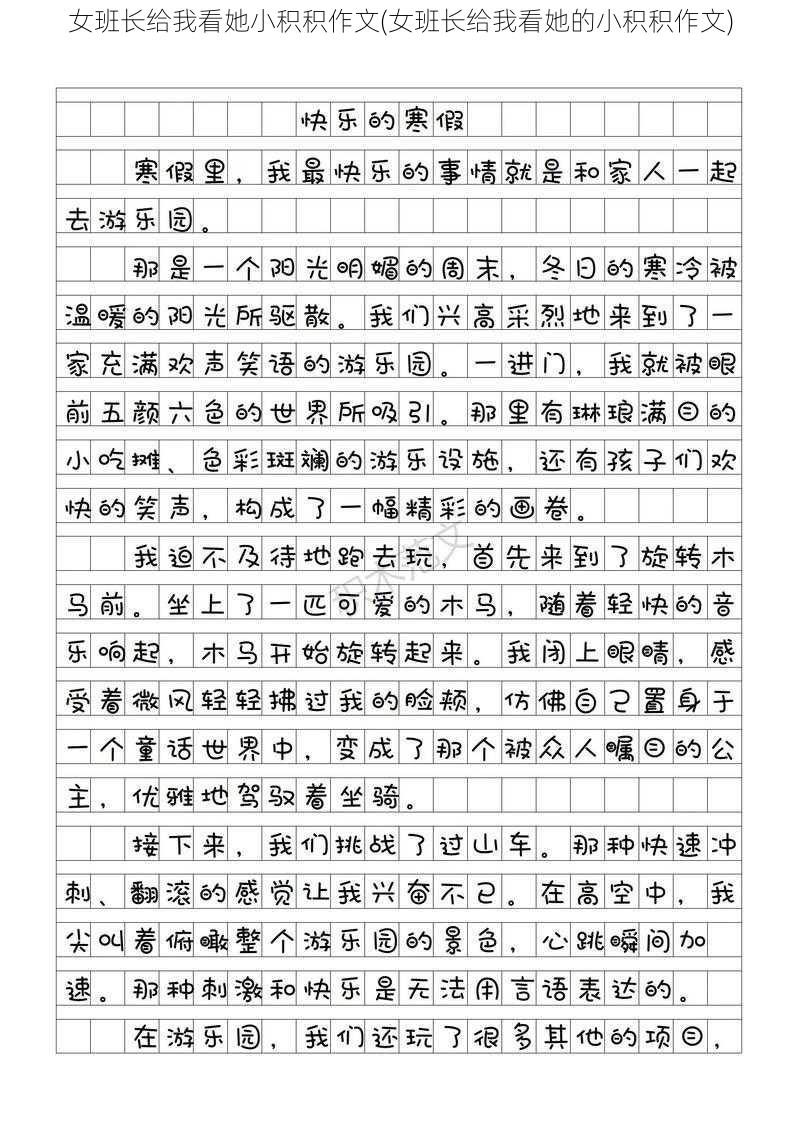 女班长给我看她小积积作文(女班长给我看她的小积积作文)
快乐的寒假
寒假里，我最快乐的事情就是和家人一起
去游乐园。
那是一个阳光明媚的周末，冬日的寒冷被
温暖的阳光所驱散。我们兴高采烈地来到了一
家充满欢声笑语的游乐园。一进门，我就被眼
前五颜六色的世界所吸引。那里有琳琅满目的
小吃摊、色彩斑斓的游乐设施，还有孩子们欢
快的笑声，构成了一幅精彩的画卷。
我迫不及待地跑去玩，首先来到了旋转木
马前。坐上了一匹可爱的木马，随着轻快的音
乐响起，木马开始旋转起来。我闭上眼睛，感
受着微风轻轻拂过我的脸颊，仿佛自己置身于
一个童话世界中，变成了那个被众人瞩目的公
主，优雅地驾驭着坐骑。
接下来，我们挑战了过山车。那种快速冲
刺、翻滚的感觉让我兴奋不已。在高空中，我
尖叫着俯瞰整个游乐园的景色，心跳瞬间加
速。那种刺激和快乐是无法用言语表达的。
在游乐园，我们还玩了很多其他的项目，
积木范文